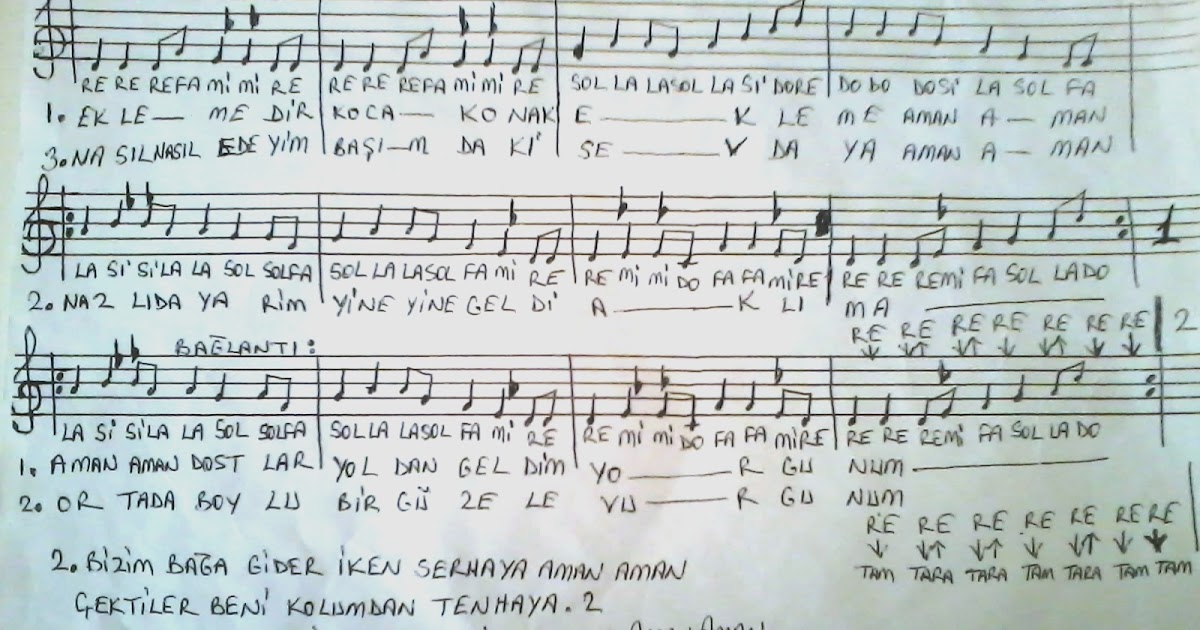 RE RE REFA Mi Mi RE RE RE REFA Mi Mi RE SOL LA LASOL LA Sİ DORE DO DO DOSİ LA SOL FA
1. EK LE — ME DİR KOCA — KO NAK E — K LE ME AMAN A — MAN
3. NA SILNASIL EDE YİM BAŞI—M DA Kİ SE — V DA YA AMAN A — MAN
LA Sİ SİLA LA SOL SOLFA SOL LA LASOL FA Mİ RE RE Mİ Mİ DO FA FA MİRE RE RE REMİ FA SOL LADO 1
2. NAZ LIDA YA RİM YİNE YİNE GEL Dİ A — K LI MA —
RE RE RE RE RE RE RE 2
BAĞLANTI:
LA Sİ SİLA LA SOL SOLFA SOL LA LASOL FA Mİ RE RE Mİ Mİ DO FA FA MİRE RE RE REMİ FA SOL LADO
1. AMAN AMAN DOST LAR YOL DAN GEL DİM YO — R GU NUM —
2. OR TADA BOY LU BİR GÜ ZE LE VU — R GU NUM
RE RE RE RE RE RE RE
TAM TARA TARA TAM TARA TAM TAM
2. BİZİM BAĞA GİDER İKEN SERHAYA AMAN AMAN
ÇEKTİLER BENİ KOLUMDAN TENHAYA. 2